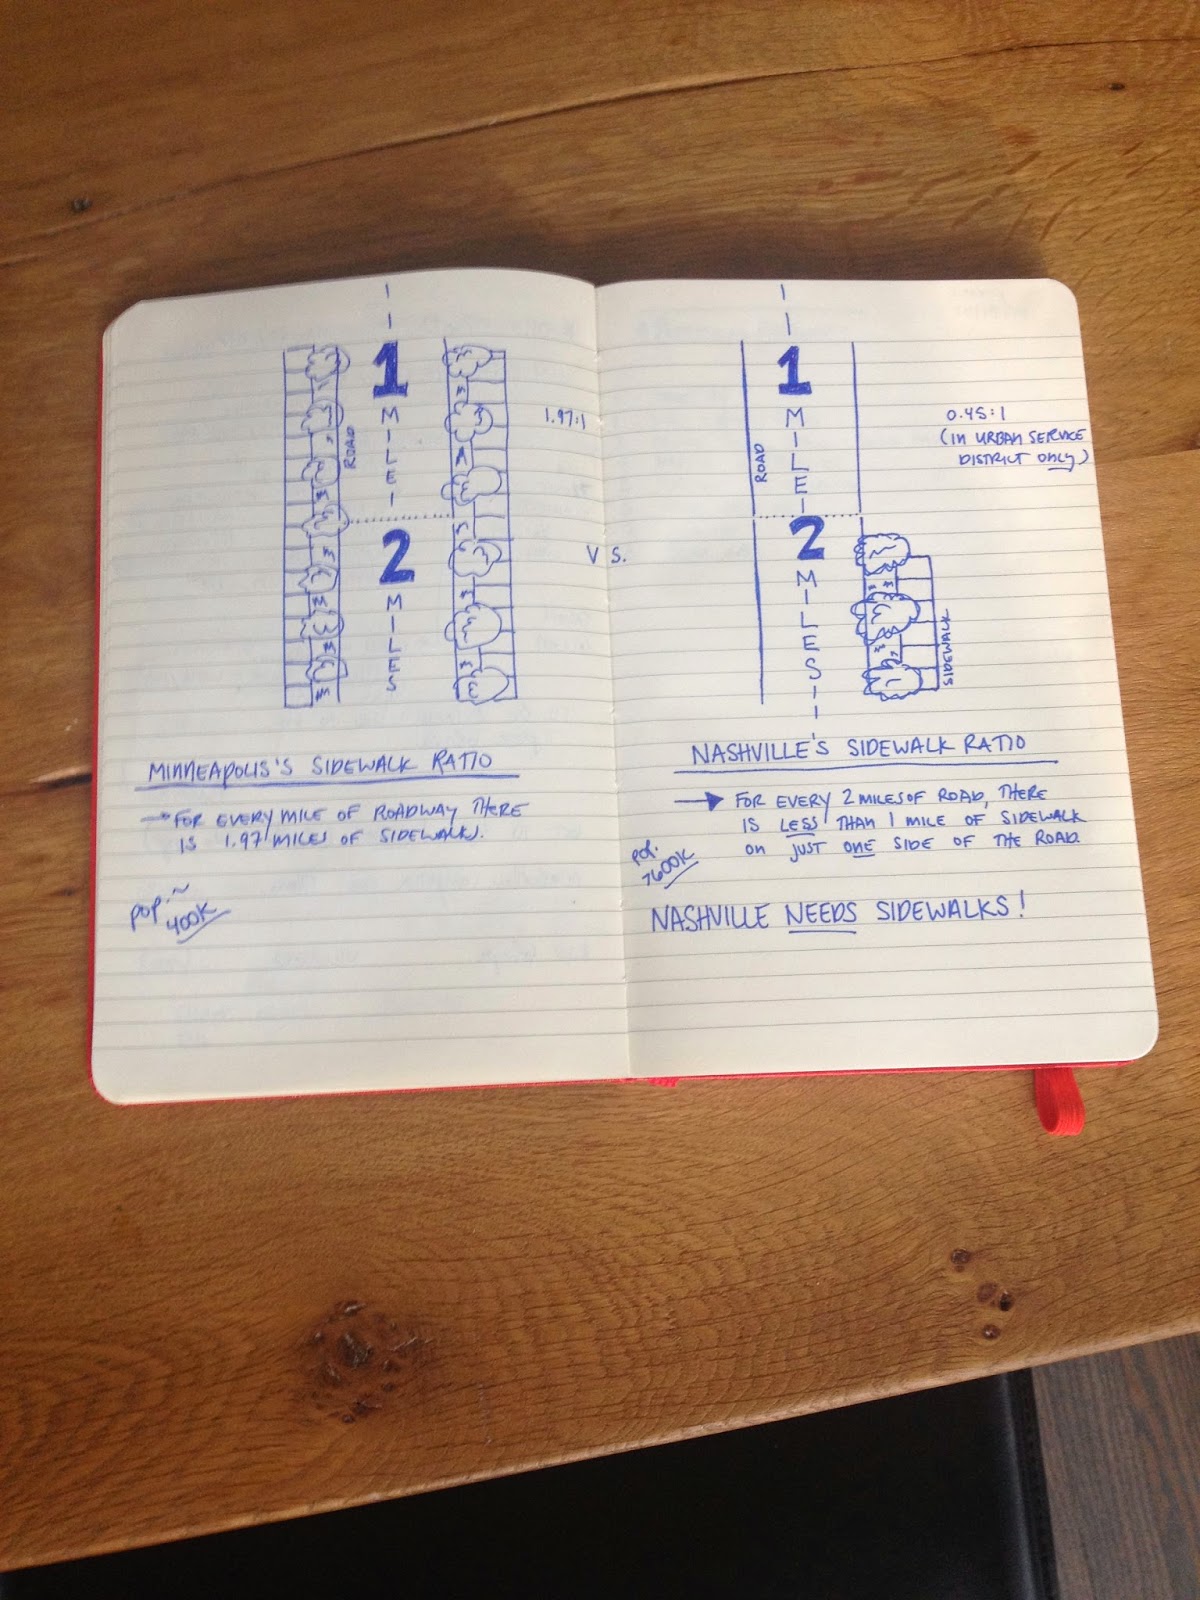 1
MILE
ROAD
1.97:1
2
MILES
MINNEAPOLIS'S SIDEWALK RATIO
→ FOR EVERY MILE OF ROADWAY THERE
IS 1.97 MILES OF SIDEWALK.
pop. ~
400K
VS.
1
MILE
ROAD
0.45:1
(IN URBAN SERVICE
DISTRICT ONLY)
2
MILES
SIDEWALK
NASHVILLE'S SIDEWALK RATIO
→ FOR EVERY 2 MILES OF ROAD, THERE
IS LESS THAN 1 MILE OF SIDEWALK
ON JUST ONE SIDE OF THE ROAD.
pop.
>600K
NASHVILLE NEEDS SIDEWALKS!